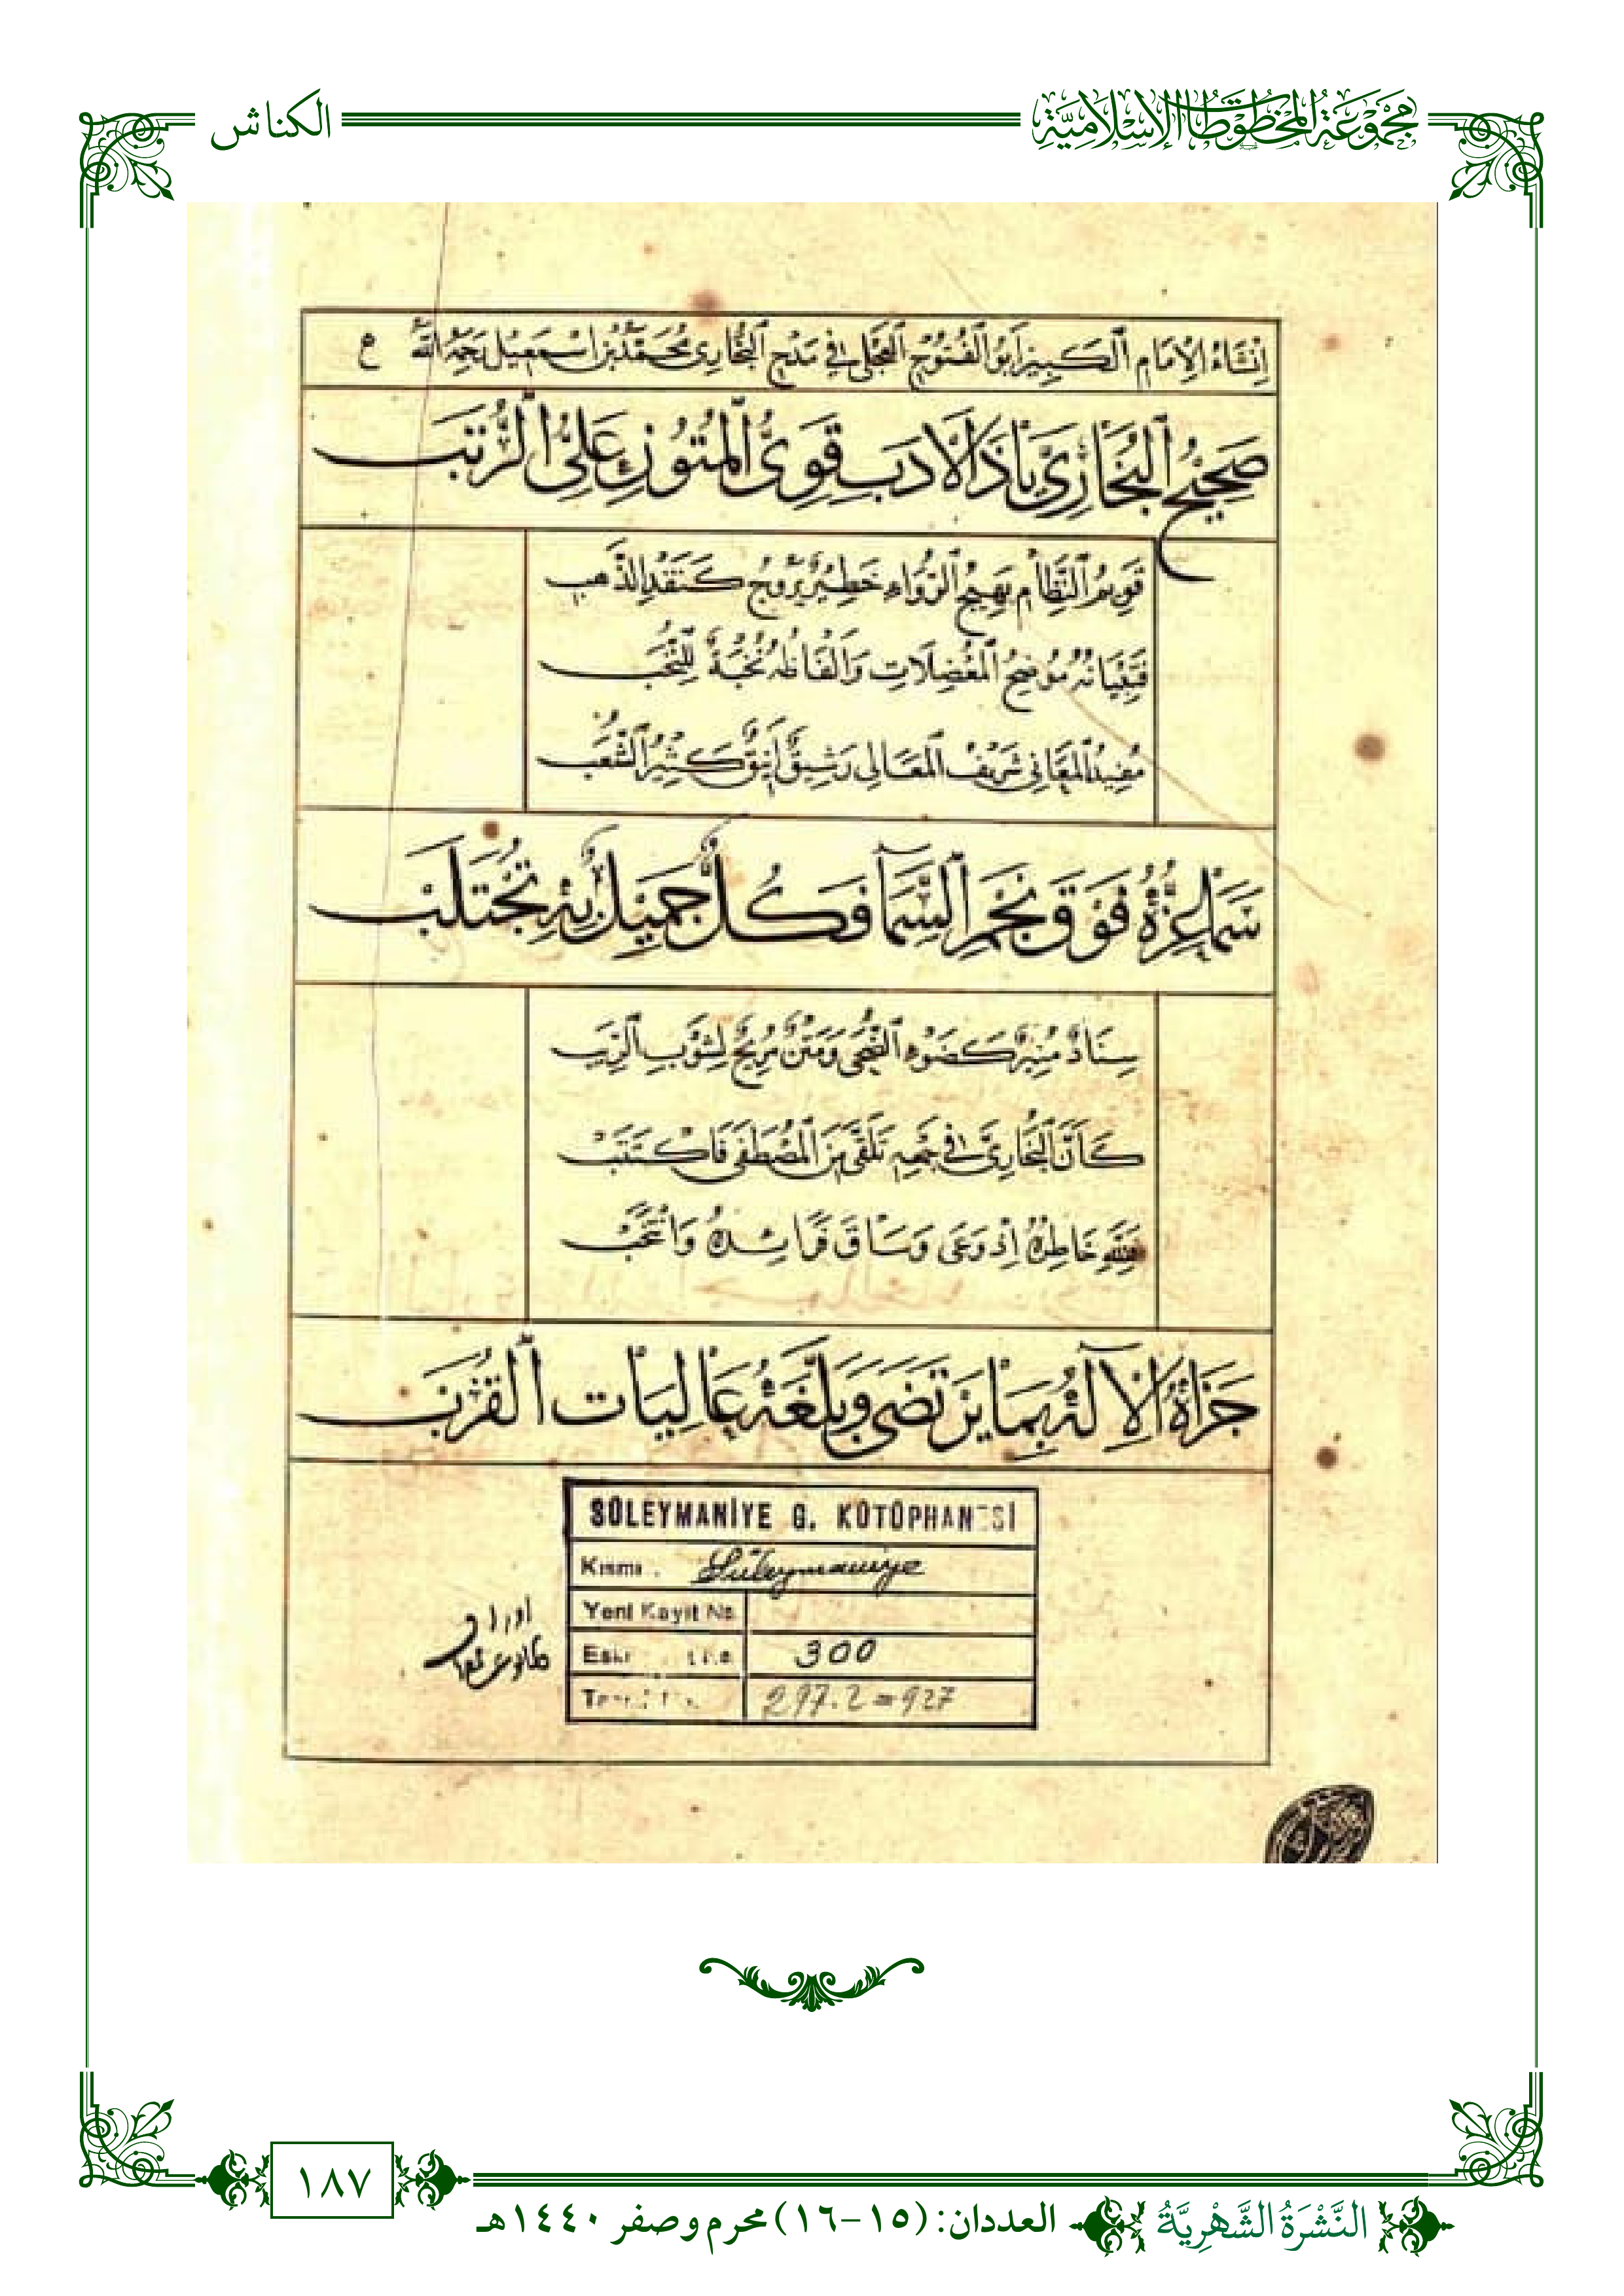 مجموعة المخطوطات الإسلامية
الكناش
إنشاء الإمام الكبير أبو الفتوح العجلي في مدح البخاري محمد بن إسمعيل رحمه الله
صَحِيحُ الْبُخَارِيِّ يَا ذَا الْأَدَبِ قَوِيُّ الْمُتُونِ عَلِيُّ الرُّتَبِ
قَوِيمُ النِّظَامِ بَهِيجُ الرُّوَاءِ خَطِيرٌ يَرُوجُ كَنَقْدِ الذَّهَبِ
فَتِبْيَانُهُ مُوضِحُ الْمُعْضِلَاتِ وَأَلْفَاظُهُ نُخْبَةٌ لِلنُّخَبِ
مُفِيدُ الْمَعَانِي شَرِيفُ الْمَعَالِي رَشِيقٌ أَنِيقٌ كَثِيرُ الشُّعَبِ
سَمَا عِزُّهُ فَوْقَ نَجْمِ السَّمَا فَكُلُّ جَمِيلٍ بِهِ يُجْتَلَبْ
سِنَادٌ مُنِيرٌ كَضَوْءِ الضُّحَى وَمَتْنٌ مُرِيحٌ لِشَوْبِ الرِّيَبِ
كَأَنَّ الْبُخَارِيَّ فِي جَمْعِهِ تَلَقَّى مِنَ الْمُصْطَفَى فَاكْتَتَبْ
فَلِلَّهِ خَاطِرُهُ إِذْ وَعَى وَسَاقَ فَرَائِدَهُ وَانْتَخَبْ
جَزَاهُ الْإِلَهُ بِمَا يَرْتَضِي وَبَلَّغَهُ عَالِيَاتِ الْقُرَبِ
SÜLEYMANİYE G. KÜTÜPHANESİ
Kısmı Süleymaniye
Yeni Kayıt No.
Eski 300
297.2=927
اوراق
١٨٧
النَّشْرَةُ الشَّهْرِيَّةُ
العددان: (١٥-١٦) محرم وصفر ١٤٤٠هـ